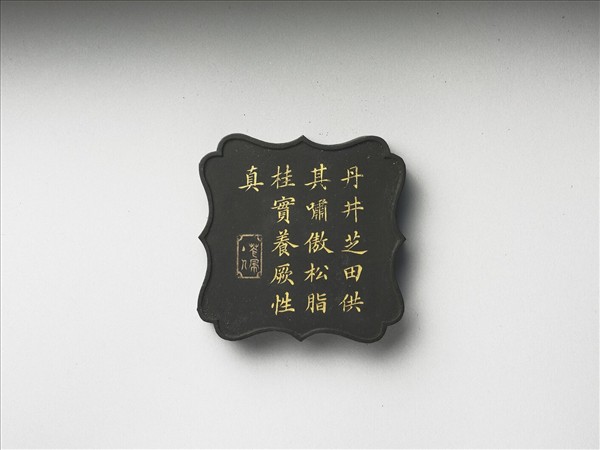 丹井芝田供
其嘯傲松脂
桂實養厥性
真